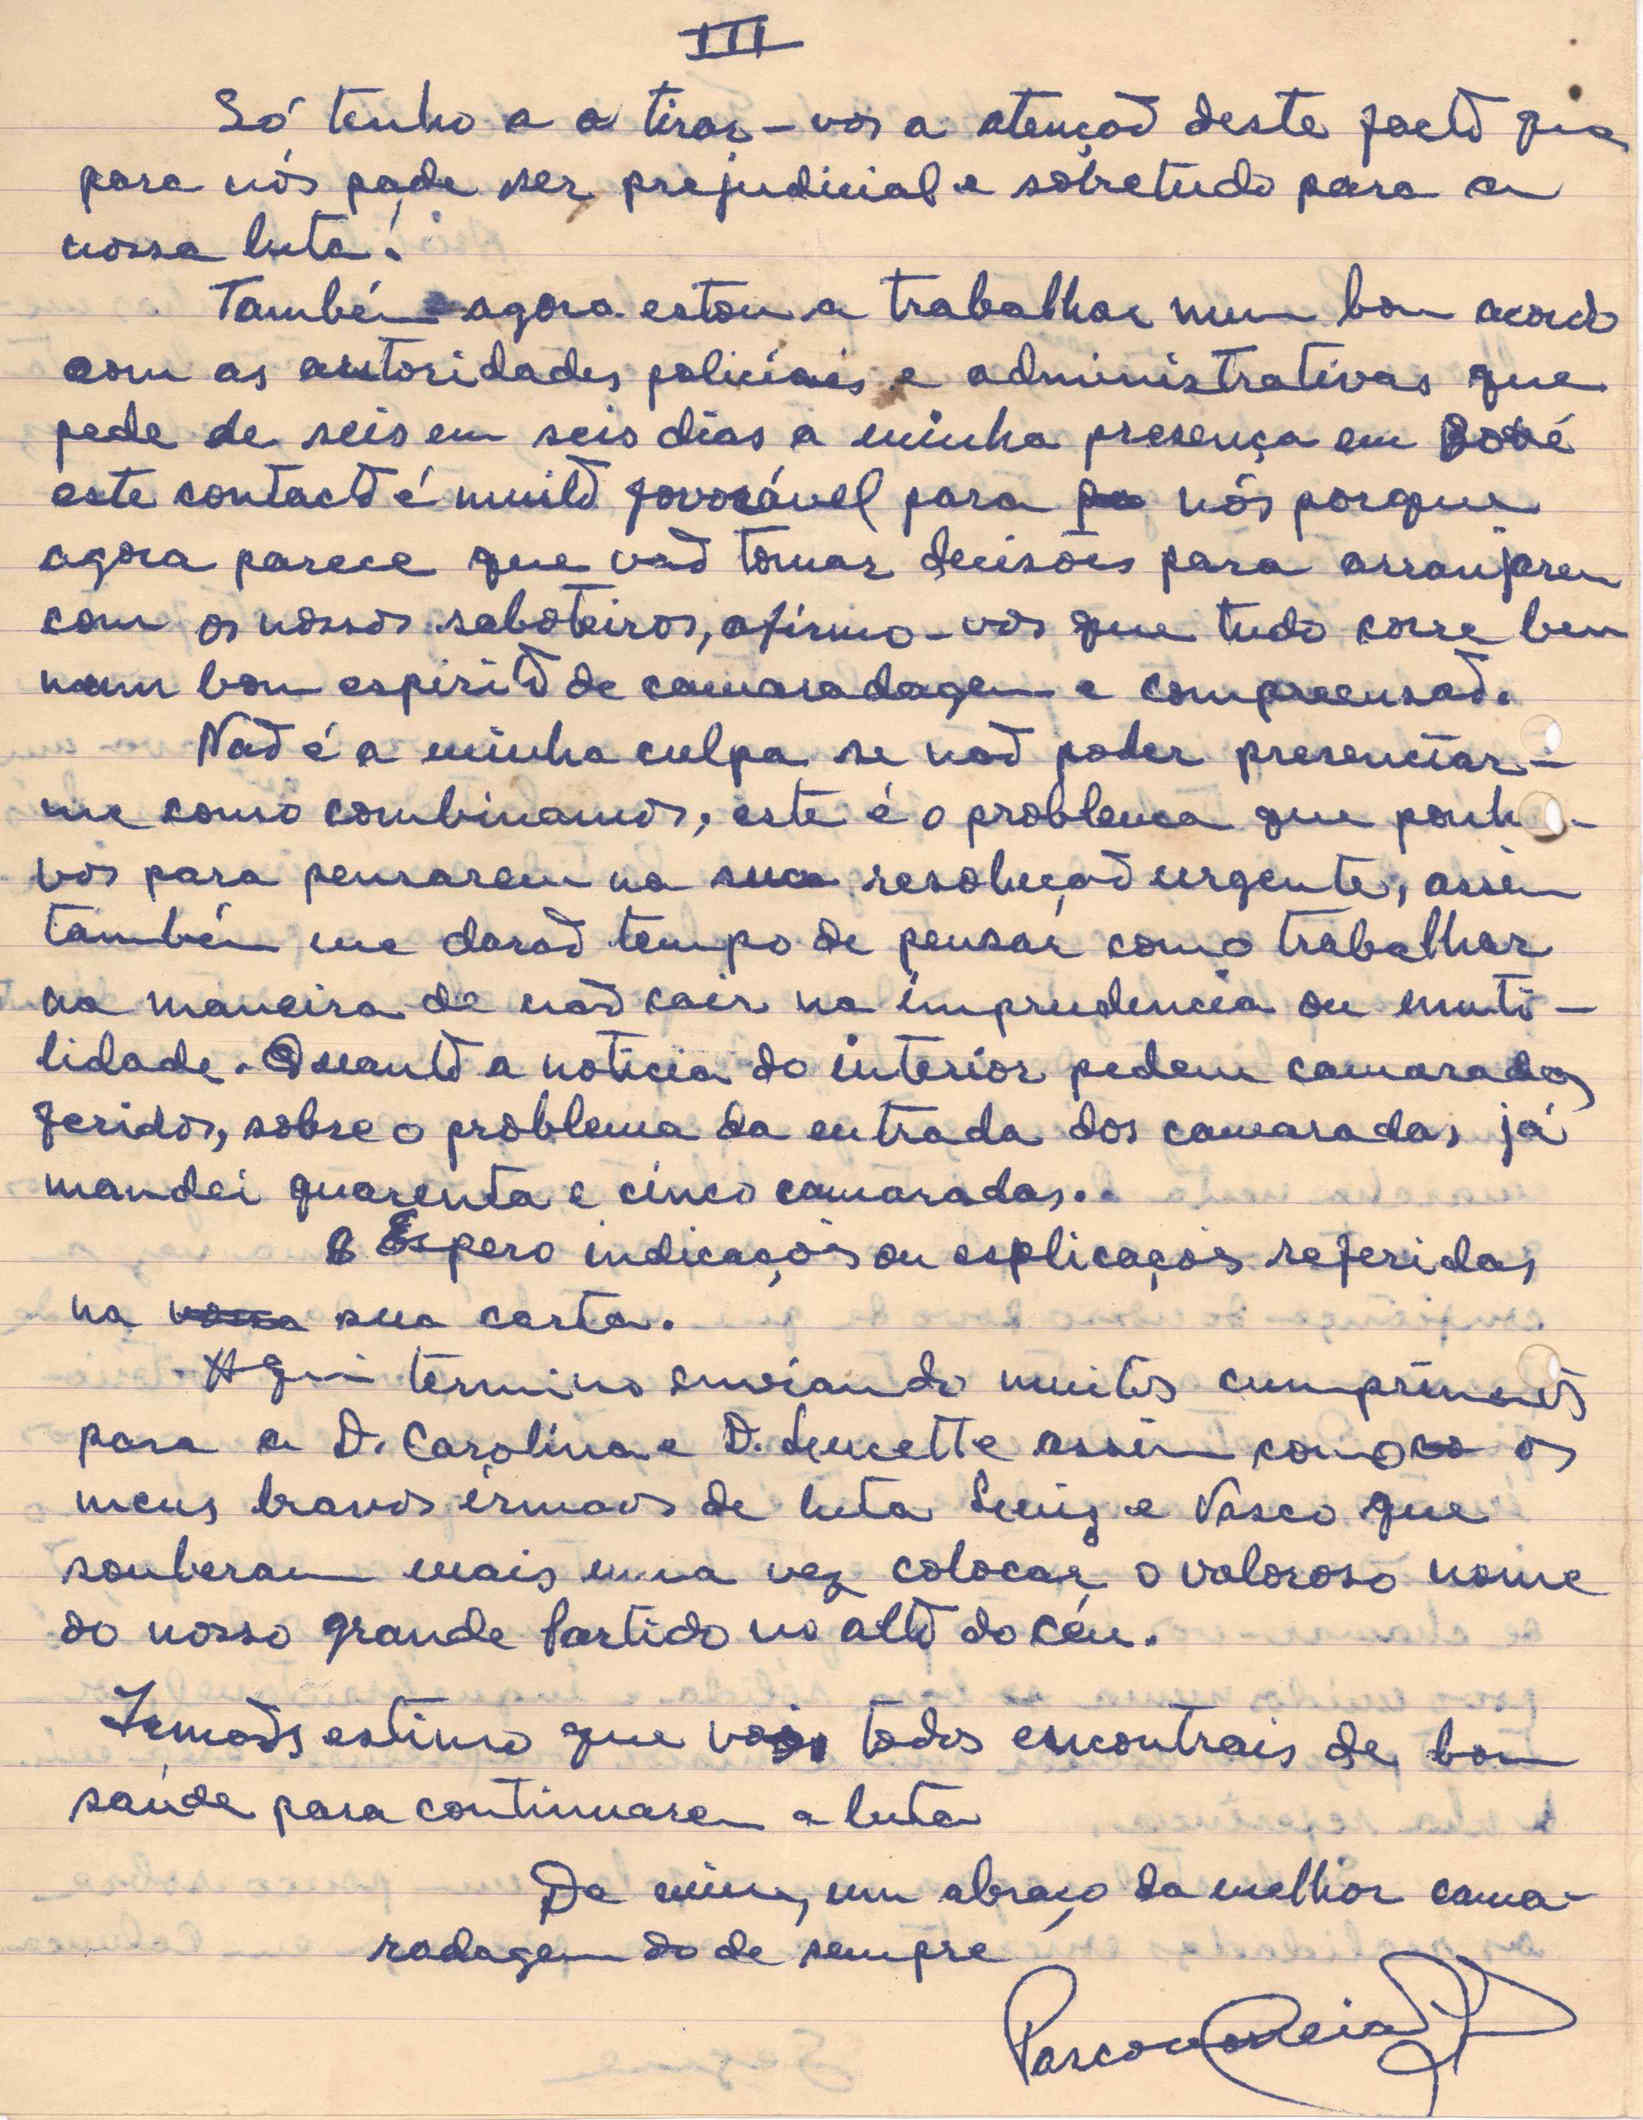 III
Só tenho a a tirar-vos a atençaõ deste factõ que
para nós pode ser prejudicial e sôbretudo para a
nossa luta!
Também agora estou a trabalhar num bom acordo
com as autoridades policíais e administrativas que
pede de seis em seis dias a minha presença em Boké
este contactõ é muitõ favorável para nós porque
agora parece que vaõ tomar decisões para arranjarem
com os nossos saboteiros, afirmo-vos que tudo corre bem
num bom espiritõ de camaradagem e compreensaõ.
Naõ é a minha culpa se naõ poder presenciar-
me como combinamos, este é o problema que ponho-
vos para pensarem na sua resoluçaõ urgente, assim
também me daraõ tempo de pensar como trabalhar
na maneira de naõ cair na imprudencia ou inuti-
lidade. Quantõ a noticia do interior pedem camaradas
feridos, sobre o problema da entrada dos camaradas já
mandei quarenta e cinco camaradas.
Espero indicaçois ou esplicaçois referidas
na vossa sua carta.
Aqui termino enviando muitos cumprimentõs
para a D. Carolina e D. Lucette assim como os
meus bravos irmaos de luta Luiz e Vasco que
souberam mais uma vez colocar o valoroso nome
do nosso grande Partido no altõ do céu.
Irmaõs estimo que vos todos encontrais de bom
saúde para continuarem a luta
De mim, um abraço da melhor cama-
radagem do de sempre
Pascoal Correia